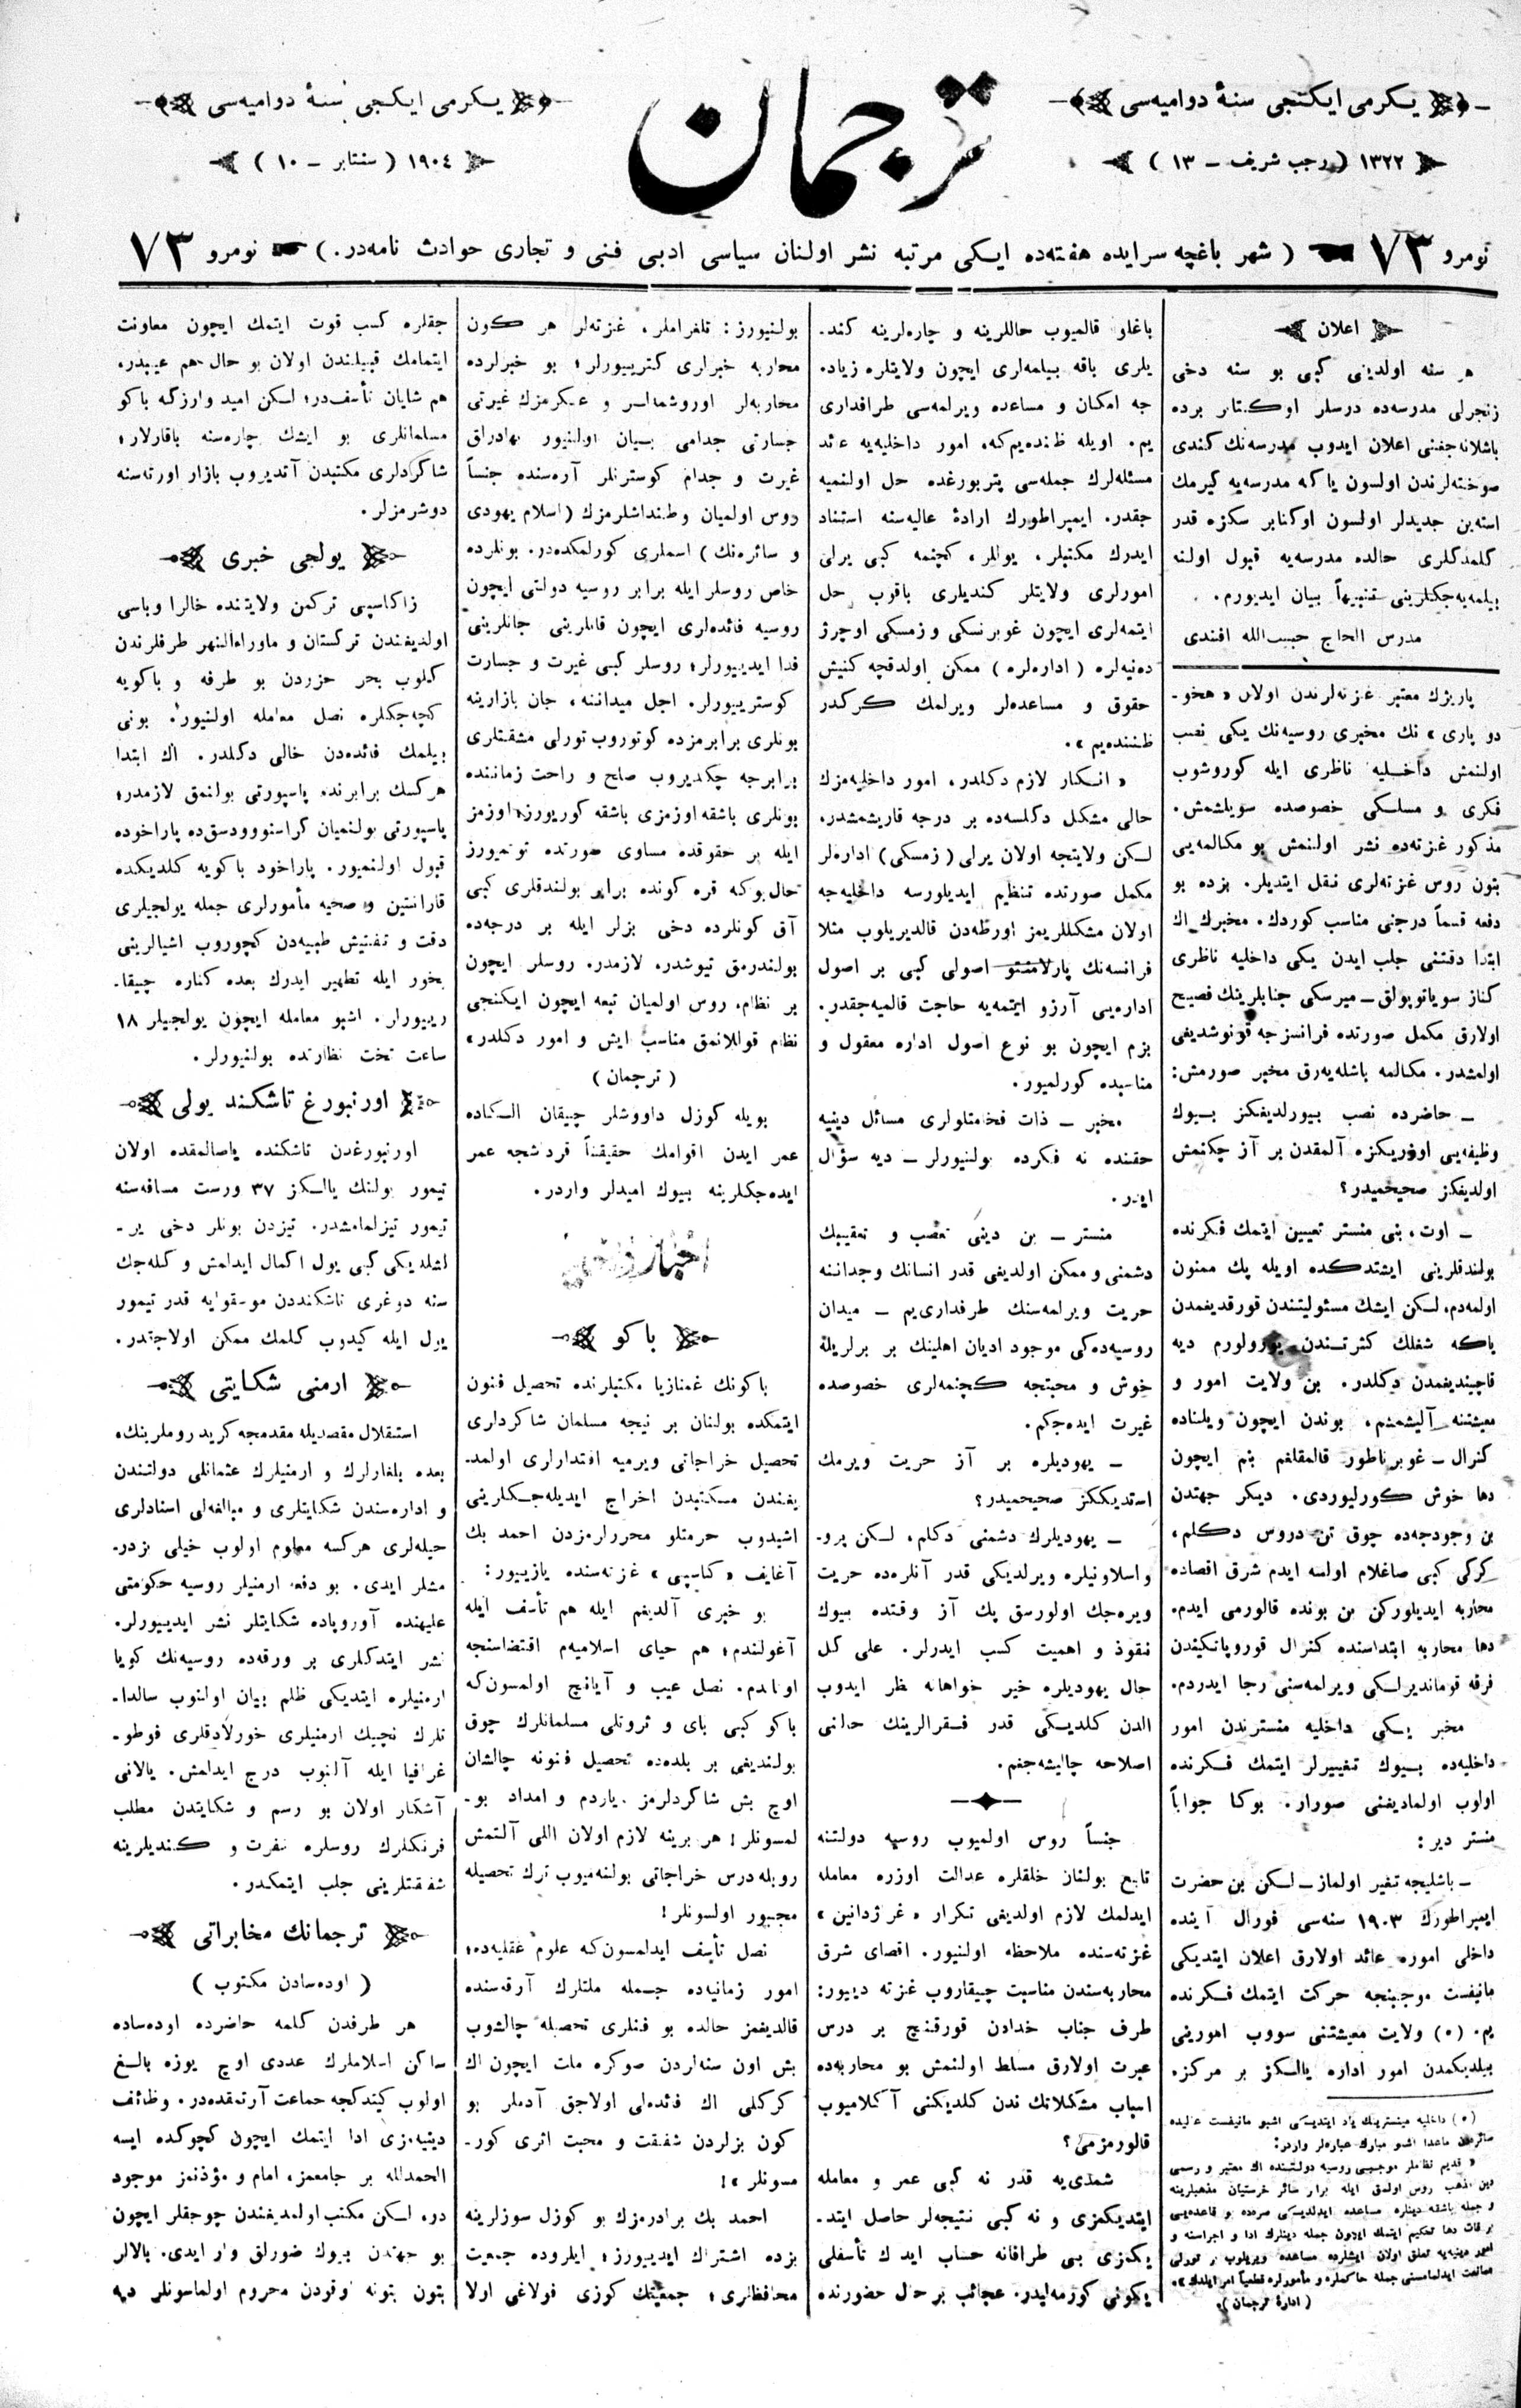 یکرمی ایکنجی سنۀ دوامیه‌سی
۱۳۲۲ ( رجب شریف – ۱۳ )
ترجمان
یکرمی ایکنجی سنۀ دوامیه‌سی
۱۹۰٤ ( سنتابر – ۱۰ )
نومرو ۷۳ ( شهر باغچه سرایده هفته‌ده ایکی مرتبه نشر اولنان سیاسی ادبی فنی و تجاری حوادث نامه‌در. ) نومرو ۷۳
اعلان
هر سنه اولدینی کبی بو سنه دخی
زنجرلی مدرسه‌ده درسلر اوکتابر برده
باشلانه‌جفنی اعلان ایدوب مدرسه‌نك کندی
صوخته‌لرندن اولسون یاکه مدرسه‌یه گیرمك
استه‌ین جدیدلر اولسون اوکتابر سکزه قدر
کلمدکلری حالده مدرسه‌یه قبول اولنه
بیلمه‌یه‌جکلرینی تنبیهاً بیان ایدیورم.
مدرس الحاج حبیب‌الله افندی
پاریزك معتبر غزته‌لرندن اولان « هخو-
دو پاری » نك مخبری روسیه‌نك یکی نصب
اولنمش داخلیه ناظری ایله کوروشوب
فکری و مسلکی خصوصده سویلشمش.
مذکور غزته‌ده نشر اولنمش بو مکالمه‌یی
بتون روس غزته‌لری نقل ایتدیلر. بزده بو
دفعه قسماً درجنی مناسب کوردك. مخبرك اك
ابتدا دقتنی جلب ایدن یکی داخلیه ناظری
کناز سویاتوپولق – میرسکی جنابلرینك فصیح
اولارق مکمل صورتده فرانسزجه قونوشدیغی
اولمشدر. مکالمه باشله‌یه‌رق مخبر صورمش:
– حاضرده نصب بیورلدیغکز بیوك
وظیفه‌یی اوزریکزه آلمقدن بر آز چکنمش
اولدیغکز صحیحمیدر؟
– اوت، بنی منستر تعیین ایتمك فکرنده
بولندقلرینی ایشتدکده اویله پك ممنون
اولمه‌دم. لسکن ایشك مسئولیتندن قورقدیغمدن
یاکه شغلك کثرتندن یورولورم دیه
قاچیندیغمدن دکلدر. بن ولایت امور و
معیشتنه آلیشمشم، بوندن ایچون ویلناده
کنرال – غوبرناطور قالمقلغم بنم ایچون
دها خوش کورلیوردی. دیکر جهتدن
بن وجودجه‌ده چوق تن دروس دکلم،
کرکی کبی صاغلام اولسه ایدم شرق اقصاده
محاربه ایدیلورکن بن بونده قالورمی ایدم.
دها محاربه ابتداسنده کنرال قوروپاتکیندن
فرقه قوماندیرلکی ویرلمه‌سنی رجا ایدردم.
مخبر یسکی داخلیه منسترندن امور
داخلیه‌ده بیوك تغییرلر ایتمك فکرنده
اولوب اولمادیغنی صورار. بوکا جواباً
منستر دیر:
– باشلیجه تغیر اولماز – لسکن بن حضرت
ایمپراطورك ۱۹۰۳ سنه‌سی فورال آینده
داخلی اموره عائد اولارق اعلان ایتدیکی
مانیفست موجبنجه حرکت ایتمك فکرنده
یم. (٥) ولایت معیشتنی سووب امورینی
بیلدیکمدن امور اداره یالکز بر مرکز.
(٥) داخلیه مینسترینك یاد ایتدیسکی اشبو مانیفست عالیده
سائرهن ماعدا اشبو مبارك عباره‌لر واردر:
« قدیم نظاملر موجبی روسیه دولتنده اك معتبر و رسمی
دین مذهب روس اولمق ایله برابر سائر خرستیان مذهبلرینه
و جمله باشقه دینلره مساعده ایدلدیسکی
( ادارۀ ترجمان ).
باغلو قالمیوب حاللرینه و چاره‌لرینه کند.
یلری باقه بیلمه‌لری ایچون ولایتلره زیاد.
جه امکان و مساعده ویرلمه‌سی طرافداری
یم. اویله ظنده‌یم‌که، امور داخلیه‌یه عائد
مسئله‌لرك جمله‌سی پتربورغده حل اولنمیه
جقدر. ایمپراطورك ارادۀ عالیه‌سنه استناد
ایدرك مکتبلر، یوللر، کچنمه کبی یرلی
امورلری ولایتلر کندیلری باقوب حل
ایتمه‌لری ایچون غوبرنسکی و زمسکی اوچرژ
ده‌نیه‌لره ( اداره‌لره ) ممکن اولدقچه کنیش
حقوق و مساعده‌لر ویرلمك کرکدر
ظننده‌یم ».
« انکار لازم دکلدر، امور داخلیه‌مزك
حالی مشکل دکلسه‌ده بر درجه قاریشمشدر.
لسکن ولایتجه اولان یرلی ( زمسکی ) اداره‌لر
مکمل صورتده تنظیم ایدیلورسه داخلیه‌جه
اولان مشکللریمز اورطه‌دن قالدیریلوب مثلا
فرانسه‌نك پارلامنتو اصولی کبی بر اصول
اداره‌یی آرزو ایتمه‌یه حاجت قالمیه‌جقدر.
بزم ایچون بو نوع اصول اداره معقول و
مناسبده کورلمیور.
مخبر – ذات فخامتلولری مسائل دینیه
حقنده نه فکرده بولنیورلر – دیه سؤال
ایدر.
منستر – بن دینی تعصب و تعقیبك
دشمنی و ممکن اولدیغی قدر انسانك وجداننه
حریت ویرلمه‌سنك طرفداری‌یم – میدان
روسیه‌ده‌کی موجود ادیان اهلینك بر برلریله
خوش و محبتجه کچنمه‌لری خصوصده
غیرت ایده‌جکم.
– یهودیلره بر آز حریت ویرمك
استدیککز صحیحمیدر؟
– یهودیلرك دشمنی دکلم، لسکن پرو-
واسلاونیلره ویرلدیکی قدر آنلره‌ده حریت
ویره‌جك اولورسق پك آز وقتده بیوك
نفوذ و اهمیت کسب ایدرلر. علی کل
حال یهودیلره خیر خواهانه نظر ایدوب
الدن کلدیکی قدر فقرالرینك حالنی
اصلاحه چالیشه‌جغم.
جنساً روس اولمیوب روسیه دولتنه
تابع بولنان خلقلره عدالت اوزره معامله
ایدلمك لازم اولدیغی تکرار « غرژدانین »
غزته‌سنده ملاحظه اولنیور. اقصای شرق
محاربه‌سندن مناسبت چیقاروب غزته دییور:
طرف جناب خدادن قورقنچ بر درس
عبرت اولارق مسلط اولنمش بو محاربه‌ده
اسباب مشکلاتك ندن کلدیکنی آکلامیوب
قالورمزمی؟
شمدی‌یه قدر نه کبی عمر و معامله
ایتدیکمزی و نه کبی نتیجه‌لر حاصل ایتد-
یکمزی بی طرافانه حساب ایدك تأسفلی
یکونی کوزمه‌لیدر. عجائب بر حال حضورنده
بولنیورز: تلغراملر، غزته‌لر هر کون
محاربه خبرلری کتریبورلر؛ بو خبرلرده
محاربه‌لر اوروشمالر و عسکرمزك غیرتی
جسارتی جدامی بیان اولنیور بهادراق
غیرت و جدام کوسترنلر آره‌سنده جنساً
روس اولمیان وطنداشلرمزك ( اسلام یهودی
و سائره‌نك ) اسملری کورلمکده‌در. بونلرده
خاص روسلر ایله برابر روسیه دولتی ایچون
روسیه فائده‌لری ایچون قانلرینی جانلرینی
فدا ایدییورلر؛ روسلر کبی غیرت و جسارت
کوستریبورلر. اجل میداننه، جان بازارینه
بونلری برابرمزده کوتوروب تورلی مشقتلری
برابرجه چکدیروب صلح و راحت زماننده
بونلری باشقه اوزمزی باشقه کوریورز، اوزمز
ایله بر حقوقده مساوی صورتده توتمیورز
حال‌بوکه قره کونده برابر بولندقلری کبی
آق کونلرده دخی بزلر ایله بر درجه‌ده
بولندرمق تیوشدر، لازمدر. روسلر ایچون
بر نظام، روس اولمیان تبعه ایچون ایکنجی
نظام قوللانمق مناسب ایش و امور دکلدر»
( ترجمان )
بویله کوزل داووشلر چیقان الکاده
عمر ایدن اقوامك حقیقتاً قردشجه عمر
ایده‌جکلرینه بیوك امیدلر واردر.
باکو
باکونك غمنازیا مکتبلرنده تحصیل فنون
ایتمکده بولنان بر نیجه مسلمان شاکرداری
تحصیل خراجاتی ویرمیه اقتدارلری اولمد-
یغندن مکتبدن اخراج ایدیله‌جکلرینی
اشیدوب حرمتلو محررلرمزدن احمد بك
آغایف « کاسپی » غزته‌سنده یازییور:
بو خبری آلدیغم ایله هم تأسف ایله
آغولندم؛ هم حیای اسلامیه‌م اقتضاسنجه
اوتاندم. نصل عیب و آیانچ اولمسون‌که
باکو کبی بای و ثروتلی مسلمانلرك چوق
بولندیغی بر بلده‌ده تحصیل فنونه چالشان
اوچ بش شاکردلرمز یاردم و امداد بو-
لمسونلر! هر برینه لازم اولان اللی آلتمش
روبله درس خراجاتی بولنه‌میوب ترك تحصیله
مجبور اولسونلر!
نصل تأسف ایدلمسون‌که علوم عقلیه‌ده؛
امور زمانیه‌ده جمله ملتلرك آرقه‌سنده
قالدیغمز حالده بو فنلری تحصیله چالشوب
بش اون سنه‌لردن صوکره ملت ایچون اك
کرکلی اك فائده‌لی اولاجق آدملر بو
کون بزلردن شفقت و محبت اثری کور-
مسونلر »!
احمد بك برادرمزك بو کوزل سوزلرینه
بزده اشتراك ایدییورز؛ ایلروده جمعیت
محافظلری؛ جمعیتك کوزی قولاغی اولا
جقلره کسب قوت ایتمك ایچون معاونت
ایتمامك قبیلندن اولان بو حال هم عیبدر.
هم شایان تأسف‌در؛ لسکن امید وارزکه باکو
مسلمانلری بو ایشك چاره‌سنه باقارلار؛
شاکردلری مکتبدن آتدیروب بازار اورته‌سنه
دوشرمزلر.
یولجی خبری
زاکاسپی ترکمن ولایتنده خالرا وباسی
اولدیغندن ترکستان و ماوراءالنهر طرفلرندن
کلوب بحر حزردن بو طرفه و باکویه
کچه‌جکلره نصل معامله اولنیور؟ بونی
بیلمك فائده‌دن خالی دکلدر. اك ابتدا
هرکسك برابرنده پاسپورتی بولنمق لازمدر؛
پاسپورتی بولنمیان کراسنوودسق‌ده پاراخوده
قبول اولنمیور. پاراخود باکویه کلدیکده
قارانتین و صحیه مأمورلری جمله یولجیلری
دقت و تفتیش طبیه‌دن کچوروب اشیالرینی
بخور ایله تطهیر ایدرك بعده کناره چیقا-
ریبورلر. اشبو معامله ایچون یولجیلر ۱۸
ساعت تحت نظارتده بولنیورلر.
اورنبورغ تاشکند یولی
اورنبورغدن تاشکنده یاصالمقده اولان
تیمور یولنك یالکز ۳۷ ورست مسافه‌سنه
تیمور تیزلمامشدر. تیزدن بونلر دخی یر-
لشله‌یکی کبی یول اکمال ایدلمش و کله‌جك
سنه دوغری تاشکنددن موسقوایه قدر تیمور
یول ایله کیدوب کلمك ممکن اولاجقدر.
ارمنی شکایتی
استقلال مقصدیله مقدمجه کرید روملرینك،
بعده بلغارلرك و ارمنیلرك عثمانلی دولتندن
و اداره‌سندن شکایتلری و مبالغه‌لی اسنادلری
حیله‌لری هرکسه معلوم اولوب خیلی بزدر-
مشلر ایدی. بو دفعه ارمنیلر روسیه حکومتی
علیهنده آوروپاده شکایتلر نشر ایدیبورلر.
نشر ایتدکلری بر ورقه‌ده روسیه‌نك کویا
ارمنیلره ایتدیکی ظلم بیان اولنوب سالدا-
تلرك نیچك ارمنیلری خورلادقلری فوطو-
غرافیا ایله آلنوب درج ایدلمش. یالانی
آشکار اولان بو رسم و شکایتدن مطلب
فرنکلرك روسلره نفرت و کندیلرینه
شفقتلرینی جلب ایتمکدر.
ترجمانك مخابراتی
( اوده‌سادن مکتوب )
هر طرفدن کلمه حاضرده اوده‌ساده
ساکن اسلاملرك عددی اوچ یوزه بالغ
اولوب کیتدکجه جماعت آرتمقده‌در. وظائف
دینیه‌مزی ادا ایتمك ایچون کچوکده ایسه
الحمدلله بر جامعمز، امام و مؤذنمز موجود
در. لسکن مکتب اولمدیغندن چوجقلر ایچون
بو جهتدن بیوك ضورلق وار ایدی. بالالر
بتون بتونه اوقودن محروم اولماسونلر دیه